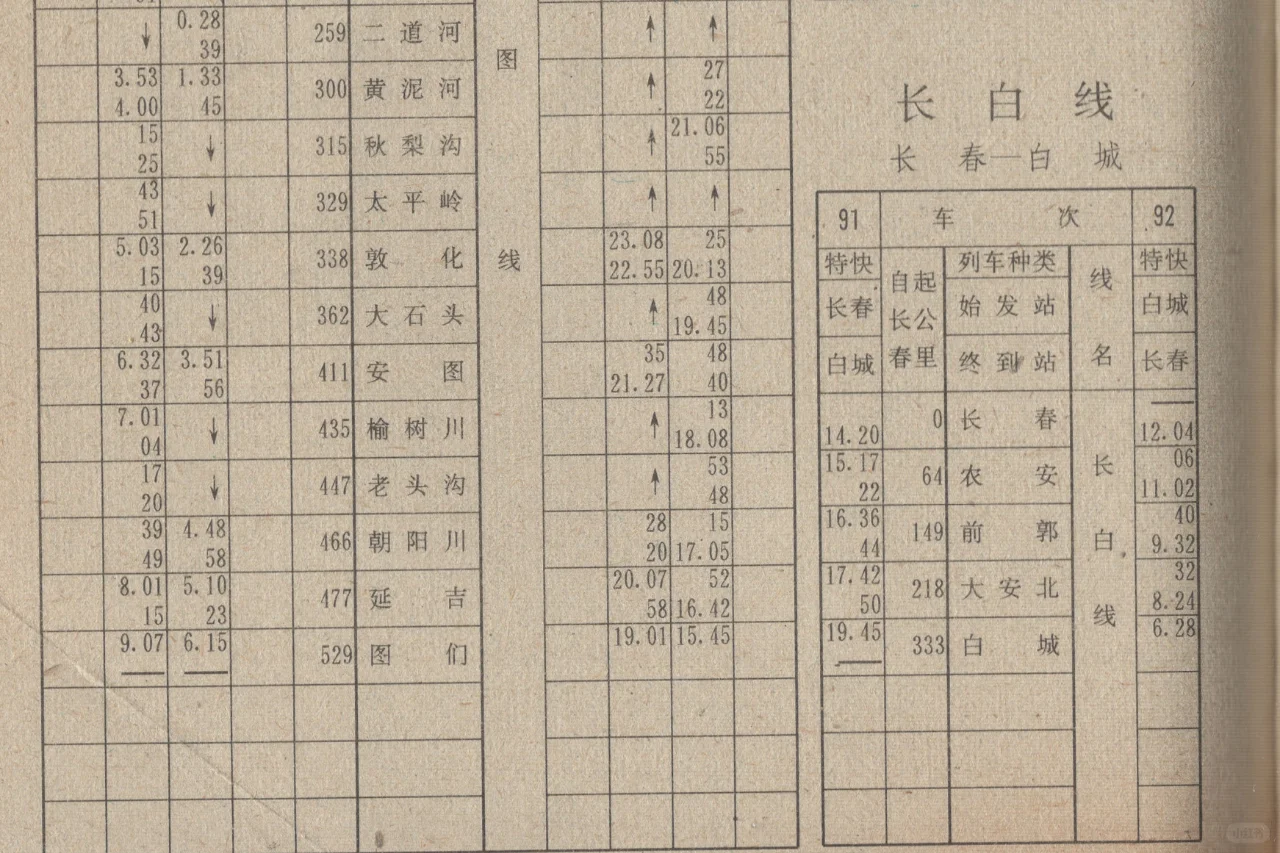 0.28 259 二道河 ↑ ↑
↓ 39
3.53 1.33 300 黄泥河 ↑ 27
4.00 45 22
15 ↓ 315 秋梨沟 ↑ 21.06
25 55
43 ↓ 329 太平岭 ↑ ↑
51
5.03 2.26 338 敦化 23.08 25
15 39 22.55 20.13
40 ↓ 362 大石头 ↑ 48
43 19.45
6.32 3.51 411 安图 35 48
37 56 21.27 40
7.01 ↓ 435 榆树川 ↑ 13
04 18.08
17 ↓ 447 老头沟 ↑ 53
20 48
39 4.48 466 朝阳川 28 15
49 58 20 17.05
8.01 5.10 477 延吉 20.07 52
15 23 58 16.42
9.07 6.15 529 图们 19.01 15.45
— —
图
线
长白线
长春—白城
91 车次 92
特快 自起长公春里 列车种类 线名 特快
长春 始发站 白城
白城 终到站 长春
0 长春 —
14.20 12.04
15.17 64 农安 06
22 11.02
16.36 149 前郭 40
44 9.32
17.42 218 大安北 32
50 8.24
19.45 333 白城 6.28
—
长白线
小红书